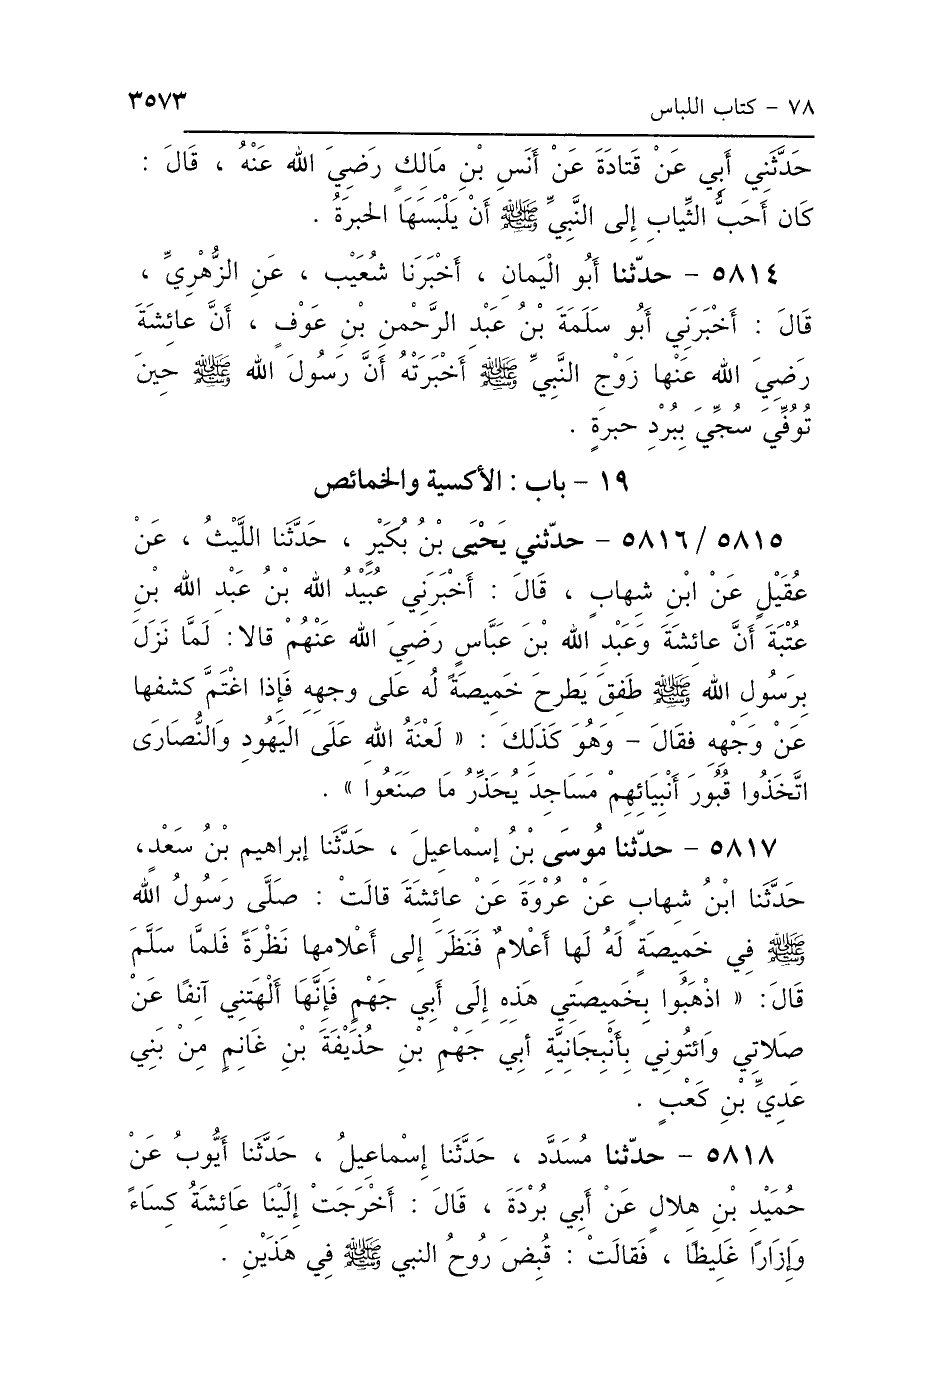 ٧٨ - كتاب اللباس ٣٥٧٣
حَدَّثَنِي أَبِي عَنْ قَتادَةَ عَنْ أَنَسِ بْنِ مَالِكٍ رَضِيَ الله عَنْهُ ، قَالَ :
كَان أَحَبُّ الثِّيابِ إلى النَّبِيِّ ﷺ أَنْ يَلْبَسَهَا الحِبرَةُ .
٥٨١٤ - حدّثنا أَبُو الْيَمانِ ، أَخْبَرَنا شُعَيْب ، عَنِ الزُّهْرِيِّ ،
قَالَ : أَخْبَرَنِي أَبُو سَلَمَةَ بْنُ عَبْدِ الرَّحْمنِ بْنِ عَوْفٍ ، أَنَّ عائِشَةَ
رَضِيَ الله عَنْها زَوْجَ النَّبِيِّ ﷺ أَخْبَرَتْهُ أَنَّ رَسُولَ الله ﷺ حِينَ
تُوُفِّيَ سُجِّيَ بِبُرْدٍ حِبرَةٍ .
١٩ - باب : الأكسية والخمائص
٥٨١٥ / ٥٨١٦ - حدّثني يَحْيَى بْنُ بُكَيْرٍ ، حَدَّثَنا اللَّيْثُ ، عَنْ
عُقَيْلٍ عَنْ ابْنِ شهابٍ ، قَالَ : أَخْبَرَنِي عُبَيْدُ الله بْنُ عَبْدِ الله بْنِ
عُتْبَةَ أَنَّ عائِشَةَ وَعَبْدَ الله بْنَ عَبَّاسٍ رَضِيَ الله عَنْهُمْ قالا: لَمَّا نَزَلَ
بِرَسُولِ الله ﷺ طَفِقَ يَطرحَ خَمِيصَةً لُه عَلى وجهِهِ فَإذا اغْتَمَّ كشفها
عَنْ وَجْهِهِ فقَالَ - وَهُوَ كَذَلكَ : « لَعْنَةُ الله عَلَى اليَهُودِ وَالنَّصَارَى
اتَّخَذُوا قُبُورَ أَنْبِيَائِهِمْ مَسَاجِدَ يُحَذِّرُ مَا صَنَعُوا » .
٥٨١٧ - حدّثنا مُوسَى بْنُ إسْماعِيلَ ، حَدَّثَنا إبراهيم بْنُ سَعْدٍ،
حَدَّثَنا ابْنُ شهابٍ عَنْ عُرْوَةَ عَنْ عائِشَةَ قالَتْ : صلَّى رَسُولُ الله
ﷺ فِي خَمِيصَةٍ لَهُ لَها أَعْلامٌ فَنَظَرَ إلى أَعْلامِها نَظْرَةً فَلمَّا سَلَّمَ
قَالَ: « اذْهَبُوا بِخَمِيصَتِي هَذِهِ إلَى أَبِي جَهْمٍ فَإِنَّهَا أَلْهَتنِي آنفًا عَنْ
صَلاتِي وَائتُونِي بِأَنْبِجَانِيَّةِ أبِي جَهْمِ بْنِ حُذَيْفَةَ بْنِ غَانِمٍ مِنْ بَنِي
عَدِيِّ بْنِ كَعْبٍ .
٥٨١٨ - حدّثنا مُسَدَّد ، حَدَّثَنا إسْماعِيلُ ، حَدَّثَنا أَيُّوبُ عَنْ
حُمَيْدِ بْنِ هِلالٍ عَنْ أَبِي بُرْدَةَ ، قَالَ : أَخْرَجَتْ إلَيْنَا عَائِشَةُ كِسَاءً
وَإِزَارًا غَلِيظًا ، فَقالَتْ : قُبِضَ رُوحُ النبي ﷺ فِي هَذَيْنِ .